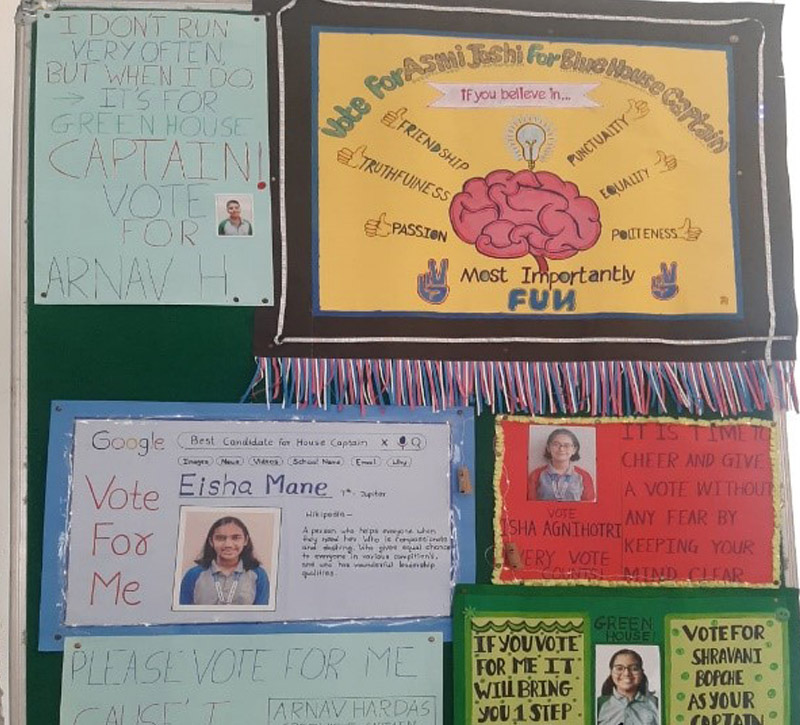 I DON'T RUN
VERY OFTEN,
BUT WHEN I DO,
→ IT'S FOR
GREEN HOUSE
CAPTAIN!
VOTE
FOR
ARNAV H.
Vote for Asmi Joshi for Blue House Captain
If you believe in...
FRIENDSHIP
TRUTHFULNESS
PASSION
PUNCTUALITY
EQUALITY
POLITENESS
Most Importantly
FUN
Google
Best Candidate for House Captain X
Images News Videos School Name Email Why
Vote
For
Me
Eisha Mane 7th Jupiter
Wikipedia -
A person who helps everyone when
they need her. Who is compassionate
and dashing. Who gives equal chance
to everyone in various competition's,
and who has wounderful leadership
qualities.
VOTE
ISHA AGNIHOTRI
EVERY VOTE
COUNTS!
IT IS TIME TO
CHEER AND GIVE
A VOTE WITHOUT
ANY FEAR BY
KEEPING YOUR
MIND CLEAR
PLEASE VOTE FOR ME
CAUSE' I
ARNAV HARDAS
IF YOU VOTE
FOR ME IT
WILL BRING
YOU 1 STEP
GREEN
HOUSE!
VOTE FOR
SHRAVANI
BOPCHE
AS YOUR
CAPTAIN